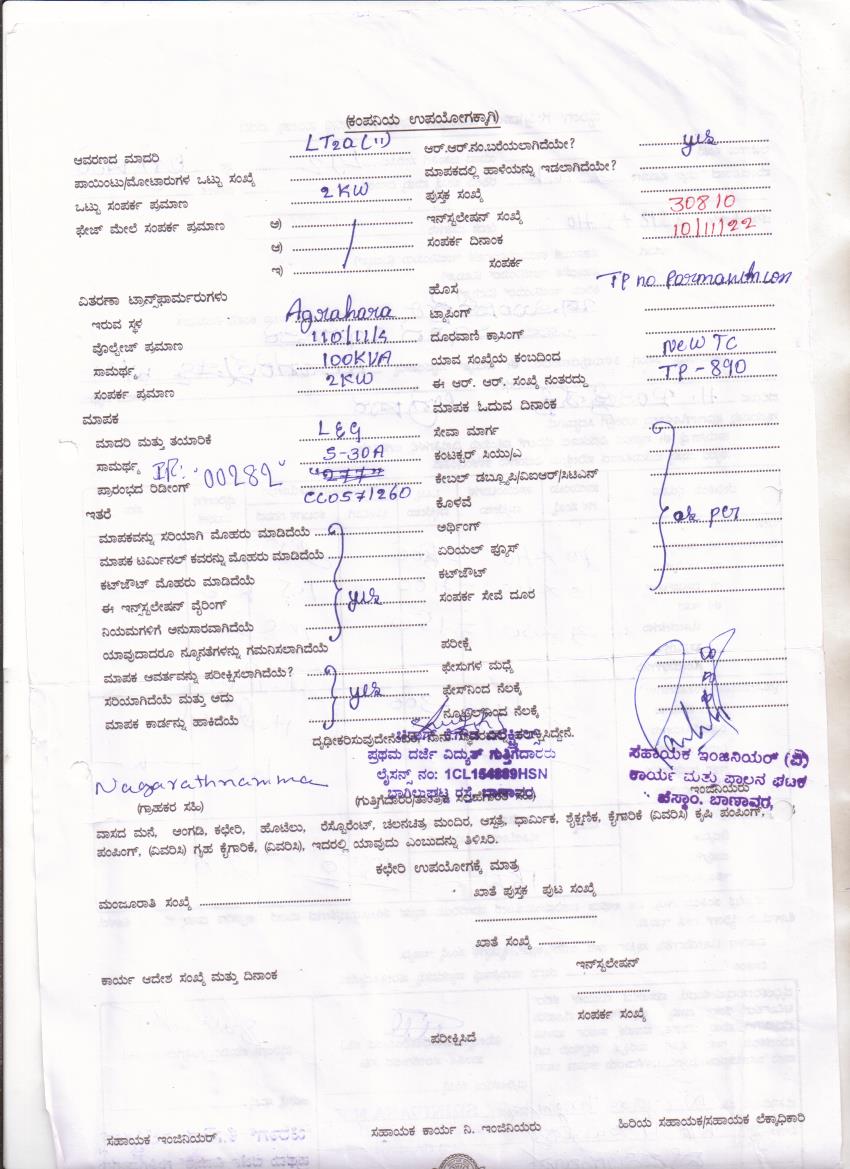 (ಕಂಪನಿಯ ಉಪಯೋಗಕ್ಕಾಗಿ)
ಆವರಣದ ಮಾದರಿ LT2a(ii) ಆರ್.ಆರ್.ನಂ.ಬರೆಯಲಾಗಿದೆಯೇ? yes
ಪಾಯಿಂಟು/ಮೋಟಾರುಗಳ ಒಟ್ಟು ಸಂಖ್ಯೆ ಮಾಪಕದಲ್ಲಿ ಹಾಳೆಯನ್ನು ಇಡಲಾಗಿದೆಯೇ?
ಒಟ್ಟು ಸಂಪರ್ಕ ಪ್ರಮಾಣ 2KW ಪುಸ್ತಕ ಸಂಖ್ಯೆ
ಫೇಜ್ ಮೇಲೆ ಸಂಪರ್ಕ ಪ್ರಮಾಣ ಅ) ಇನ್‌ಸ್ಟಲೇಷನ್ ಸಂಖ್ಯೆ 30810
ಆ) ಸಂಪರ್ಕ ದಿನಾಂಕ 10/11/22
ಇ) ಸಂಪರ್ಕ
ವಿತರಣಾ ಟ್ರಾನ್ಸ್‌ಫಾರ್ಮರುಗಳು ಹೊಸ TP no
ಇರುವ ಸ್ಥಳ Agrahara ಟ್ಯಾಪಿಂಗ್
ವೊಲ್ಟೇಜ್ ಪ್ರಮಾಣ ದೂರವಾಣಿ ಕ್ರಾಸಿಂಗ್
ಸಾಮರ್ಥ್ಯ 100KVA ಯಾವ ಸಂಖ್ಯೆಯ ಕಂಬದಿಂದ New TC
ಸಂಪರ್ಕ ಪ್ರಮಾಣ 2KW ಈ ಆರ್. ಆರ್. ಸಂಖ್ಯೆ ನಂತರದ್ದು TP-890
ಮಾಪಕ ಮಾಪಕ ಓದುವ ದಿನಾಂಕ
ಮಾದರಿ ಮತ್ತು ತಯಾರಿಕೆ L&G ಸೇವಾ ಮಾರ್ಗ
ಸಾಮರ್ಥ್ಯ 5-30A ಕಂಟಕ್ಟರ್ ಸಿಯು/ಎ
ಪ್ರಾರಂಭದ ರಿಡೀಂಗ್ IR: "00282" "277" ಕೇಬಲ್ ಡಬ್ಲ್ಯೂಪಿ/ವಿಐಆರ್/ಸಿಟಿಎಸ್
ಇತರೆ CC0571260 ಕೊಳವೆ
ಮಾಪಕವನ್ನು ಸರಿಯಾಗಿ ಮೊಹರು ಮಾಡಿದೆಯೆ ಅರ್ಥಿಂಗ್ ok per
ಮಾಪಕ ಟರ್ಮಿನಲ್ ಕವರನ್ನು ಮೊಹರು ಮಾಡಿದೆಯೆ ಏರಿಯಲ್ ಫ್ಯೂಸ್
ಕಟ್‌ಜೌಟ್ ಮೊಹರು ಮಾಡಿದೆಯೆ ಕಟ್‌ಜೌಟ್
ಈ ಇನ್‌ಸ್ಟಲೇಷನ್ ವೈರಿಂಗ್ yes ಸಂಪರ್ಕ ಸೇವೆ ದೂರ
ನಿಯಮಗಳಿಗೆ ಅನುಸಾರವಾಗಿದೆಯೆ
ಯಾವುದಾದರೂ ನ್ಯೂನತೆಗಳನ್ನು ಗಮನಿಸಲಾಗಿದೆಯೆ ಪರೀಕ್ಷೆ
ಮಾಪಕ ಆವರ್ತವನ್ನು ಪರೀಕ್ಷಿಸಲಾಗಿದೆಯೆ? ಫೇಸುಗಳ ಮಧ್ಯೆ
ಸರಿಯಾಗಿದೆಯೆ ಮತ್ತು ಅದು yes ಫೇಸ್‌ನಿಂದ ನೆಲಕ್ಕೆ
ಮಾಪಕ ಕಾರ್ಡನ್ನು ಹಾಕಿದೆಯೆ ನೂಟ್ರಲ್‌ನಿಂದ ನೆಲಕ್ಕೆ
ಪ್ರಥಮ ದರ್ಜೆ ವಿದ್ಯುತ್ ಗುತ್ತಿಗೆದಾರರು
ಲೈಸನ್ಸ್ ನಂ: 1CL154889HSN
ಬಾಣಾವರ
ಸಹಾಯಕ ಇಂಜಿನಿಯರ್ (ವಿ)
ಕಾರ್ಯ ಮತ್ತು ಪಾಲನ ಘಟಕ
ಇಂಜಿನಿಯರು
ಬಾಣಾವರ,
Nagarathnamma
(ಗ್ರಾಹಕರ ಸಹಿ)
ವಾಸದ ಮನೆ, ಅಂಗಡಿ, ಕಛೇರಿ, ಹೊಟೆಲು, ರೆಸ್ಟೊರೆಂಟ್, ಚಲನಚಿತ್ರ ಮಂದಿರ, ಆಸ್ಪತ್ರೆ, ಧಾರ್ಮಿಕ, ಶೈಕ್ಷಣಿಕ, ಕೈಗಾರಿಕೆ (ವಿವರಿಸಿ) ಕೃಷಿ ಪಂಪಿಂಗ್,
ಪಂಪಿಂಗ್, (ವಿವರಿಸಿ) ಗೃಹ ಕೈಗಾರಿಕೆ, (ವಿವರಿಸಿ), ಇದರಲ್ಲಿ ಯಾವುದು ಎಂಬುದನ್ನು ತಿಳಿಸಿರಿ.
ಕಛೇರಿ ಉಪಯೋಗಕ್ಕೆ ಮಾತ್ರ
ಮಂಜೂರಾತಿ ಸಂಖ್ಯೆ ಖಾತೆ ಪುಸ್ತಕ ಪುಟ ಸಂಖ್ಯೆ
ಖಾತೆ ಸಂಖ್ಯೆ
ಕಾರ್ಯ ಆದೇಶ ಸಂಖ್ಯೆ ಮತ್ತು ದಿನಾಂಕ ಇನ್‌ಸ್ಟಲೇಷನ್
ಸಂಪರ್ಕ ಸಂಖ್ಯೆ
ಪರೀಕ್ಷಿಸಿದೆ
ಸಹಾಯಕ ಇಂಜಿನಿಯರ್ ಸಹಾಯಕ ಕಾರ್ಯ ನಿ. ಇಂಜಿನಿಯರು ಹಿರಿಯ ಸಹಾಯಕ/ಸಹಾಯಕ ಲೆಕ್ಕಾಧಿಕಾರಿ